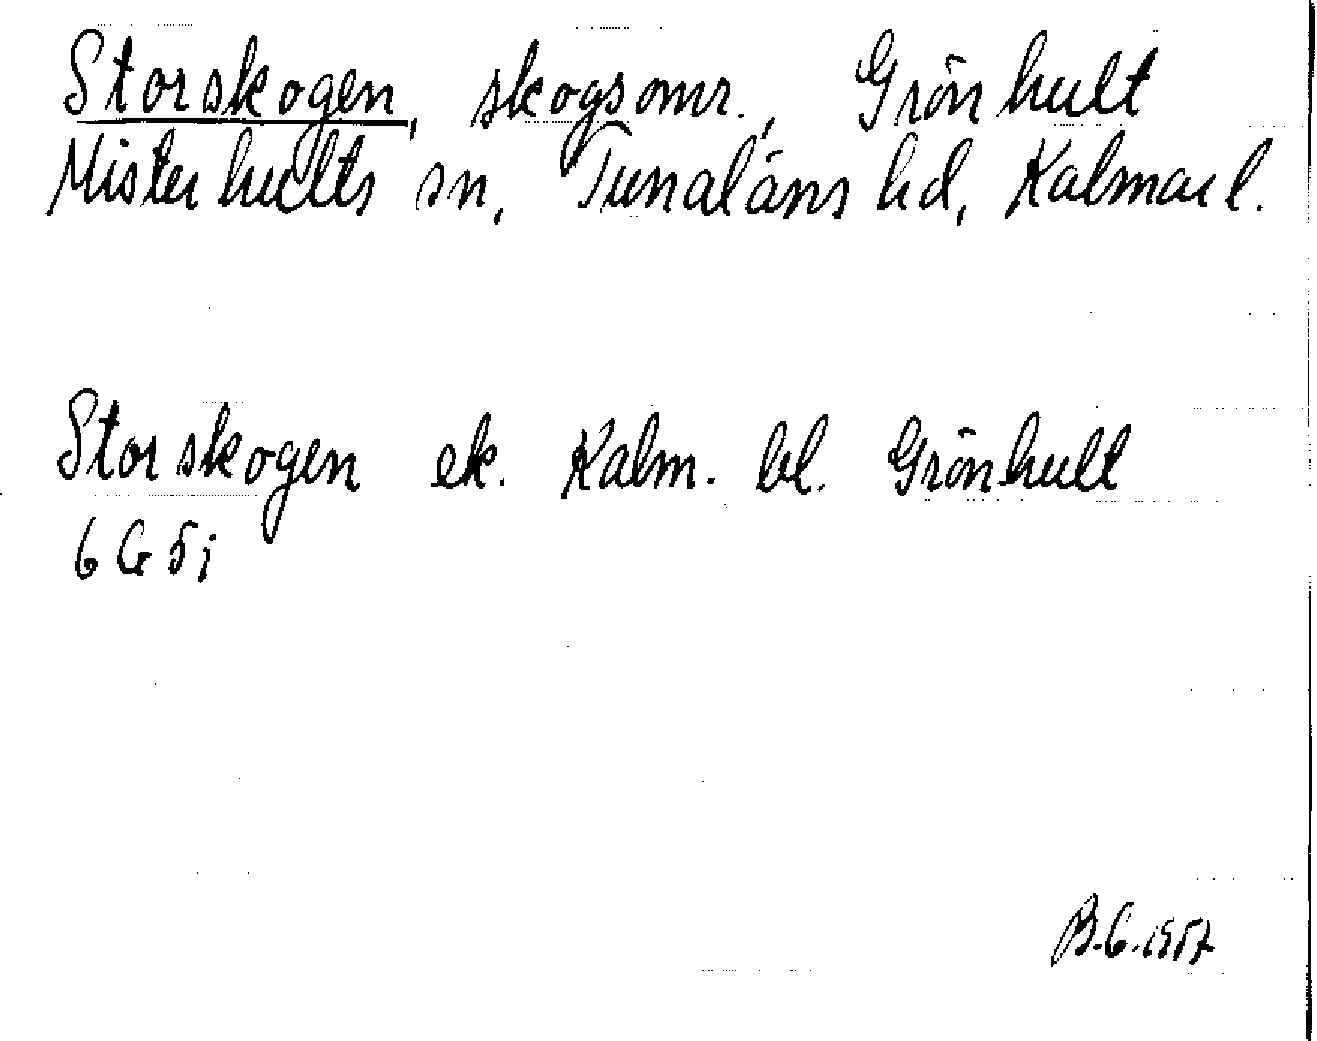 Storskogen, skogsomr., Grönhult
Misterhults sn, Tunaläns hd, Kalmar l.
Storskogen ek. Kalm. bl. Grönhult
6G 5i
B.G. 1957